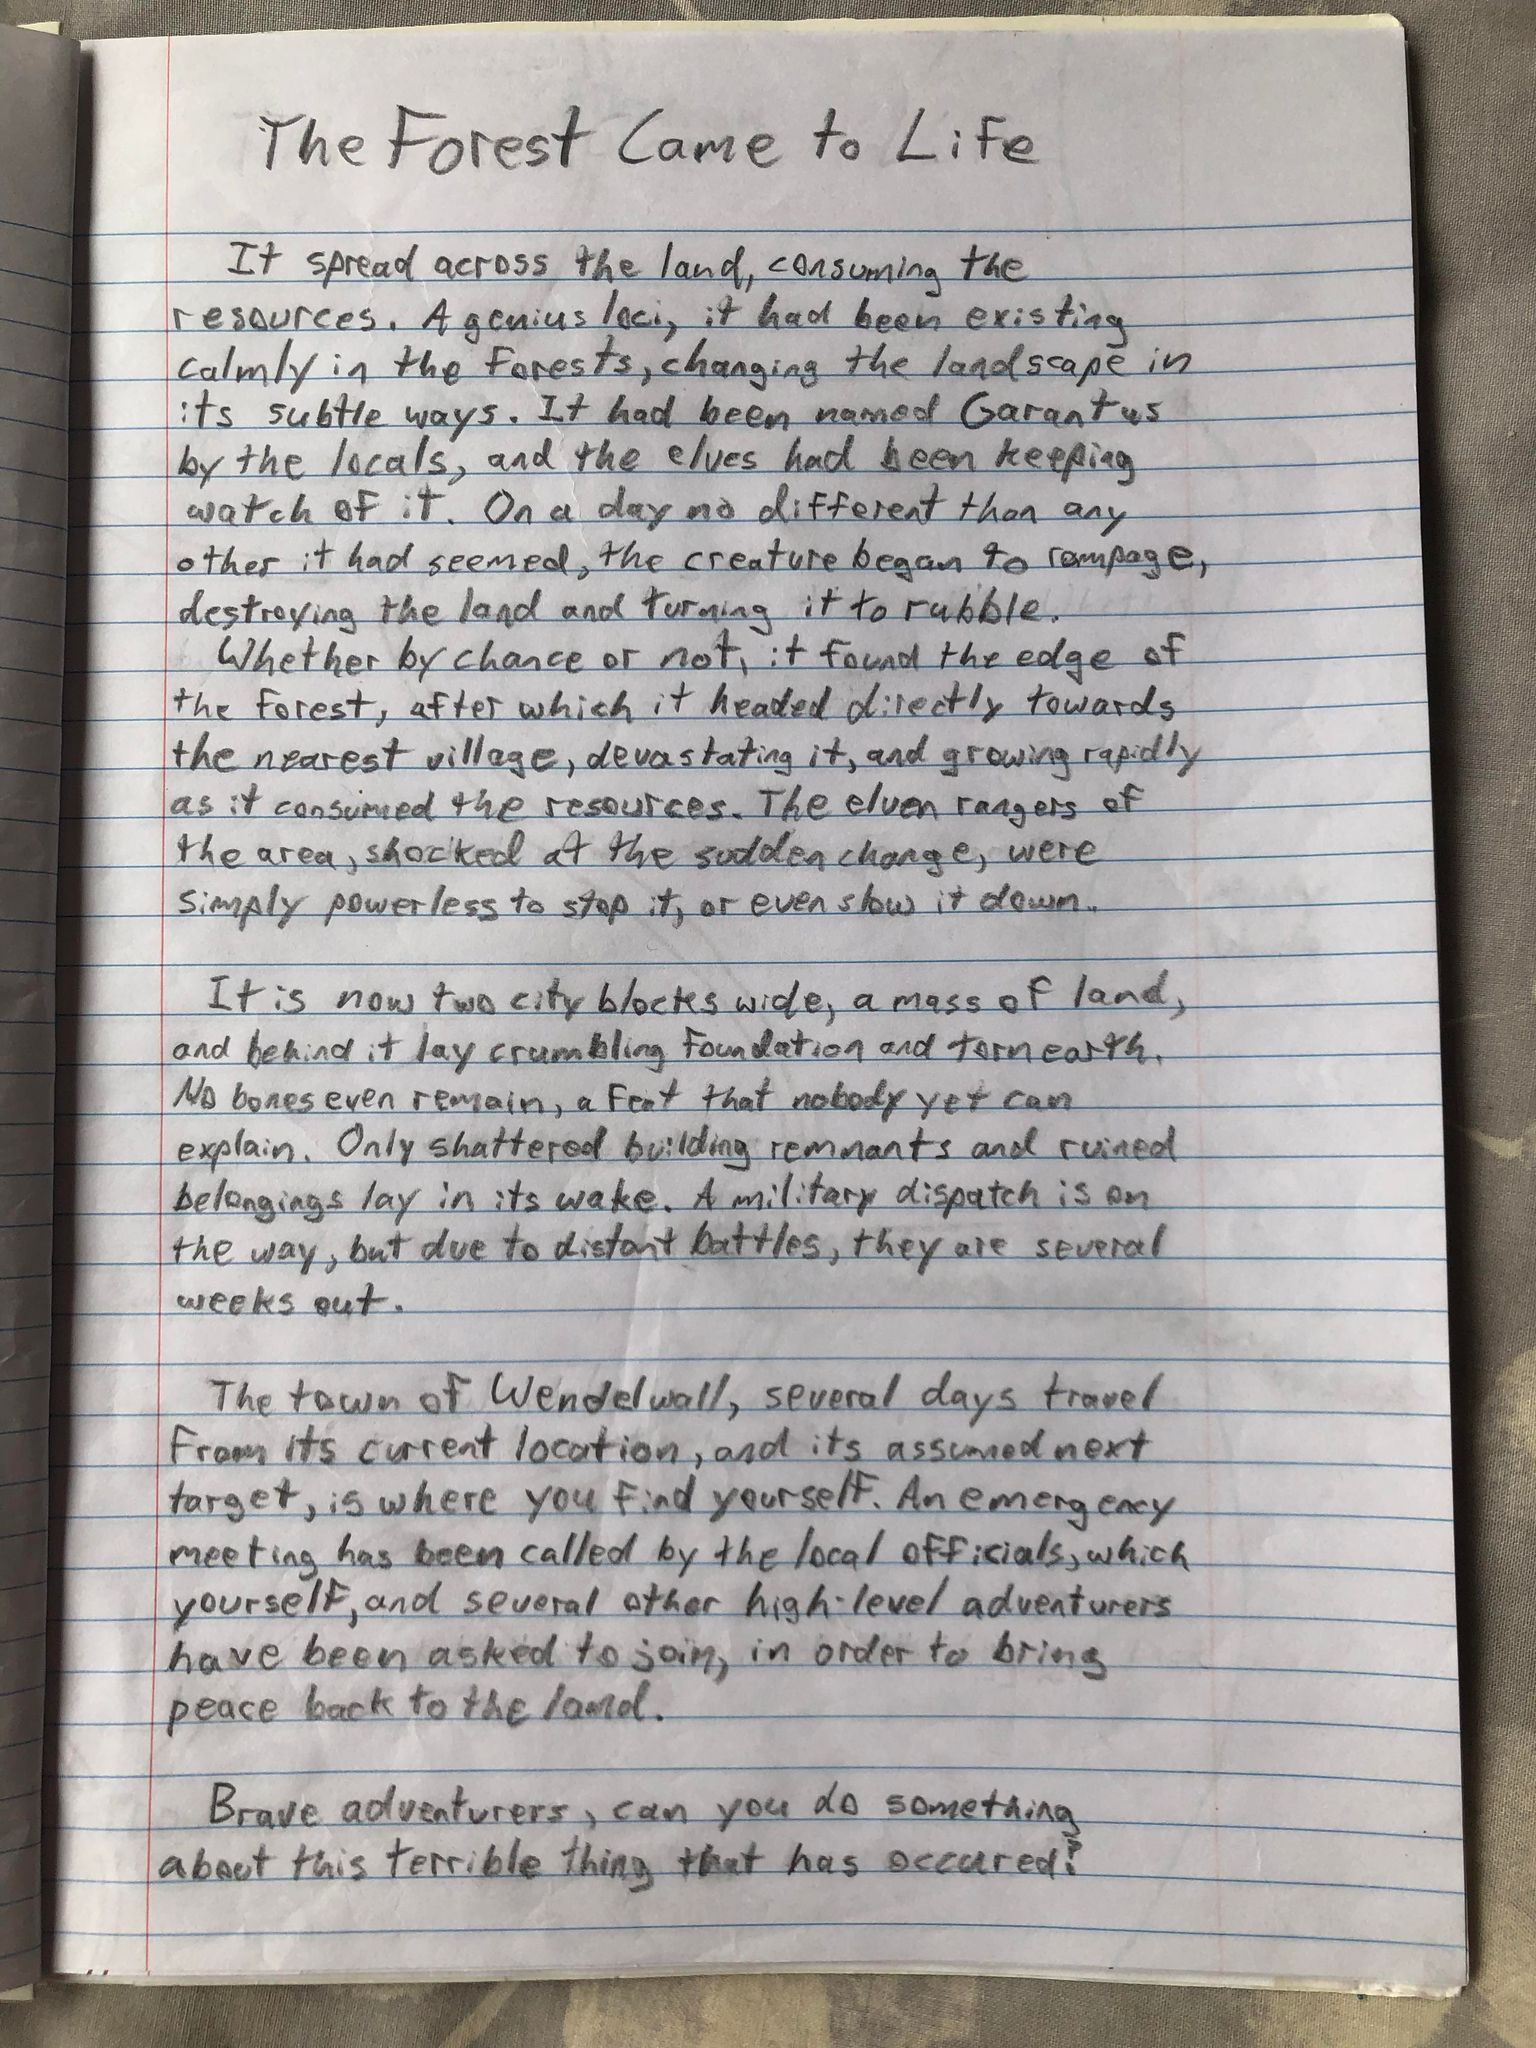 The Forest Came to Life
It spread across the land, consuming the
resources. A genius loci, it had been existing
calmly in the forests, changing the landscape in
its subtle ways. It had been named Garantus
by the locals, and the elves had been keeping
watch of it. On a day no different than any
other it had seemed, the creature began to rampage,
destroying the land and turning it to rubble.
Whether by chance or not, it found the edge of
the forest, after which it headed directly towards
the nearest village, devastating it, and growing rapidly
as it consumed the resources. The elven rangers of
the area, shocked at the sudden change, were
simply powerless to stop it, or even slow it down.
It is now two city blocks wide, a mass of land,
and behind it lay crumbling foundation and torn earth.
No bones even remain, a feat that nobody yet can
explain. Only shattered building remnants and ruined
belongings lay in its wake. A military dispatch is on
the way, but due to distant battles, they are several
weeks out.
The town of Wendelwall, several days travel
from its current location, and its assumed next
target, is where you find yourself. An emergency
meeting has been called by the local officials, which
yourself, and several other high-level adventurers
have been asked to join, in order to bring
peace back to the land.
Brave adventurers, can you do something
about this terrible thing that has occured?